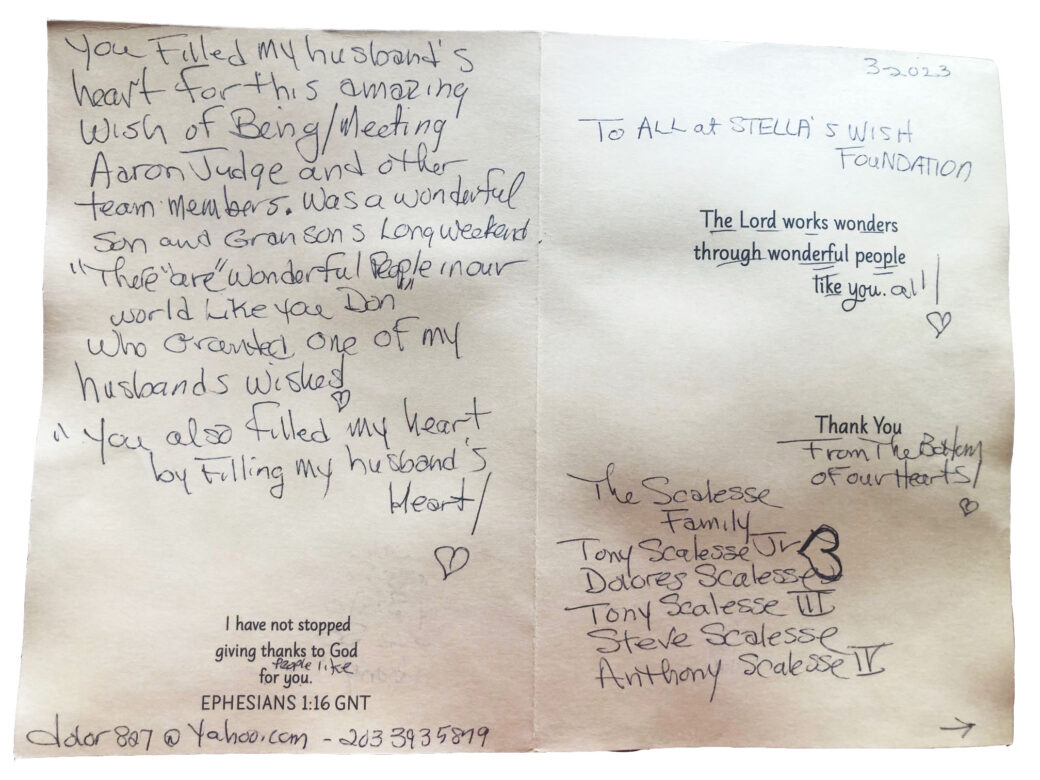 You Filled my husband's
heart for this amazing
Wish of Being/Meeting
Aaron Judge and other
team members. Was a wonderful
Son and Gransons Long weekend.
"There "are" wonderful People in our
world Like you Don"
who Granted one of my
husbands wishes!
"You also filled my heart
by Filling my husband's
Heart/
I have not stopped
giving thanks to God
people like
for you.
EPHESIANS 1:16 GNT
dolor827@Yahoo.com - 203 3935879
3-2023
To ALL at STELLA'S WISH
FOUNDATION
The Lord works wonders
through wonderful people
like you. all!
Thank You
From The Bottom
of our Hearts/
The Scalesse
Family
Tony Scalesse Jr
Dolores Scalesse
Tony Scalesse III
Steve Scalesse
Anthony Scalesse IV